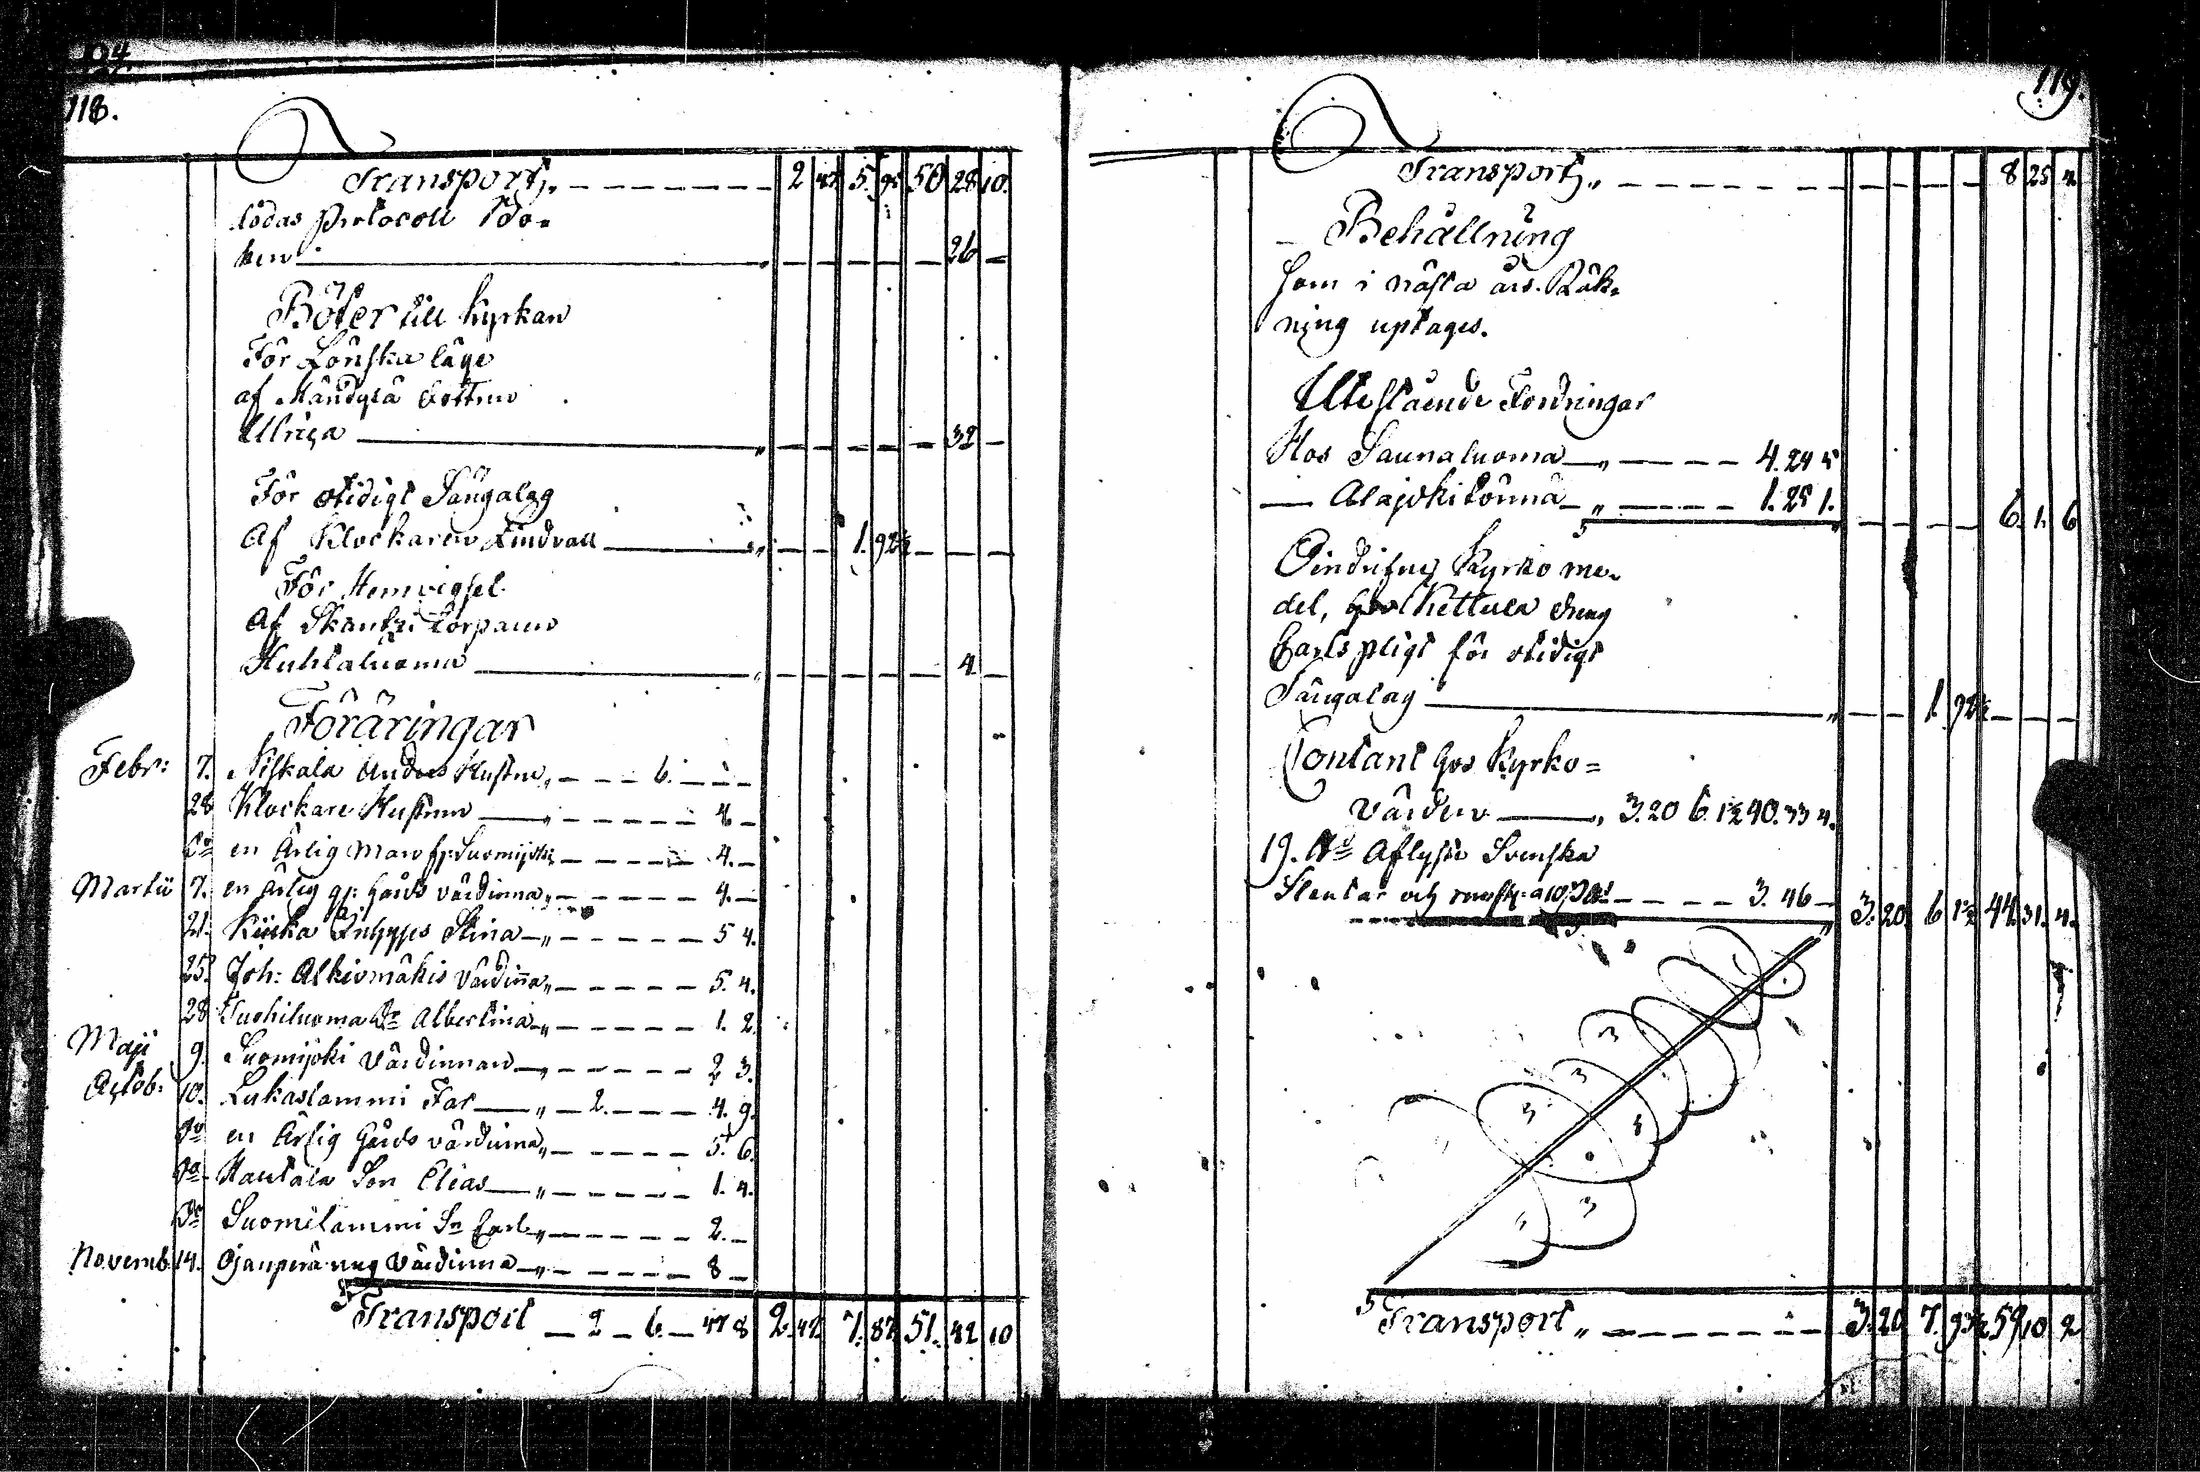 118.
Transport, 2 42 5. 95 50 28 10.
lödas Protocoll Bo=
ken 26
Böter till Kyrkan
För Lönska läge
af Mändylä dottren
Ulrica 32
För otidigt Sängalag
Af Klockaren Lindvall 1. 92½
För Hemvigsel
Af Skantzi torparen
Huhtaluoma 4
Föräringar
Febr: 7. Niskala Anders Hustru 6.
28 Klockare Hustrun 4
Do en Ärlig Man fr: Suomijoki 4.
Martii 7. en ärlig gt: Gårds värdinna 4.
21. Stina 5 4.
25. Joh: Alkiomäkis Värdiña 5. 4.
28 Tuohiluoma Dr Albertina 1. 2.
Maji 9. Suomijoki Värdinnan 2 3.
Octob: 10. Lukaslammi Far 2. 4. 9.
Do en Ärlig Gårds värdinna 5. 6.
Do Hautala Son Elias 1. 4.
Do Suomilammi Sn Carl 2.
Novemb. 14. Ojanperä ung Värdinna 8
Transport 2 6. 47 8 2. 42 7. 87 51. 42 10
119.
Transport, 8 25 4.
Behållning
Som i nästa års Räk=
ning uptages.
Utestående Fordringar
Hos Saunaluoma 4. 24 5
Alajokitönnä 1. 25 1. 6. 1. 6
Oindrifne Kyrko me=
del, hos Kettula dreng
Carls pligt för otidigt
Sängalag 1. 92½
Contant hos Kyrko=
Värden 3. 20 6. 1½ 40. 33 4.
19. Aflyste Svenska
Slantar och 3. 46 3. 20. 6 1½ 44. 31. 4.
Transport, 3. 20 7. 93½ 59. 10 2